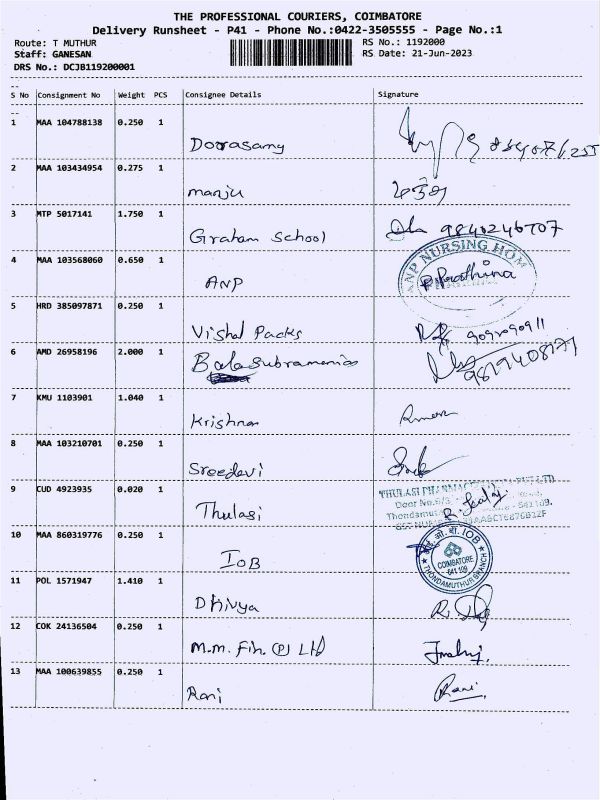 THE PROFESSIONAL COURIERS, COIMBATORE
Delivery Runsheet - P41 - Phone No.:0422-3505555 - Page No.:1
Route: T MUTHUR RS No.: 1192000
Staff: GANESAN RS Date: 21-Jun-2023
DRS No.: DCJB119200001
S No Consignment No Weight PCS Consignee Details Signature
1 MAA 104788138 0.250 1
Doorasamy
2 MAA 103434954 0.275 1
manju
3 MTP 5017141 1.750 1
Graham School 9840246707
4 MAA 103568060 0.650 1
ANP NURSING HOM
ANP P. Prathina
5 HRD 385097871 0.250 1
Vishal Packs 9092090911
6 AMD 26958196 2.000 1
Balasubramenia
7 KMU 1103901 1.040 1
Krishnan
8 MAA 103210701 0.250 1
Sreedevi
9 CUD 4923935 0.020 1
THULASI PHARMAC
Door No.
Thondamut 641 109.
Thulasi
10 MAA 860319776 0.250 1
IOB
IOB COIMBATORE 641 109 THONDAMUTHUR BRANCH
11 POL 1571947 1.410 1
Dhivya
12 COK 24136504 0.250 1
M.M. Fin. (P) Ltd
13 MAA 100639855 0.250 1
Rani Rani.